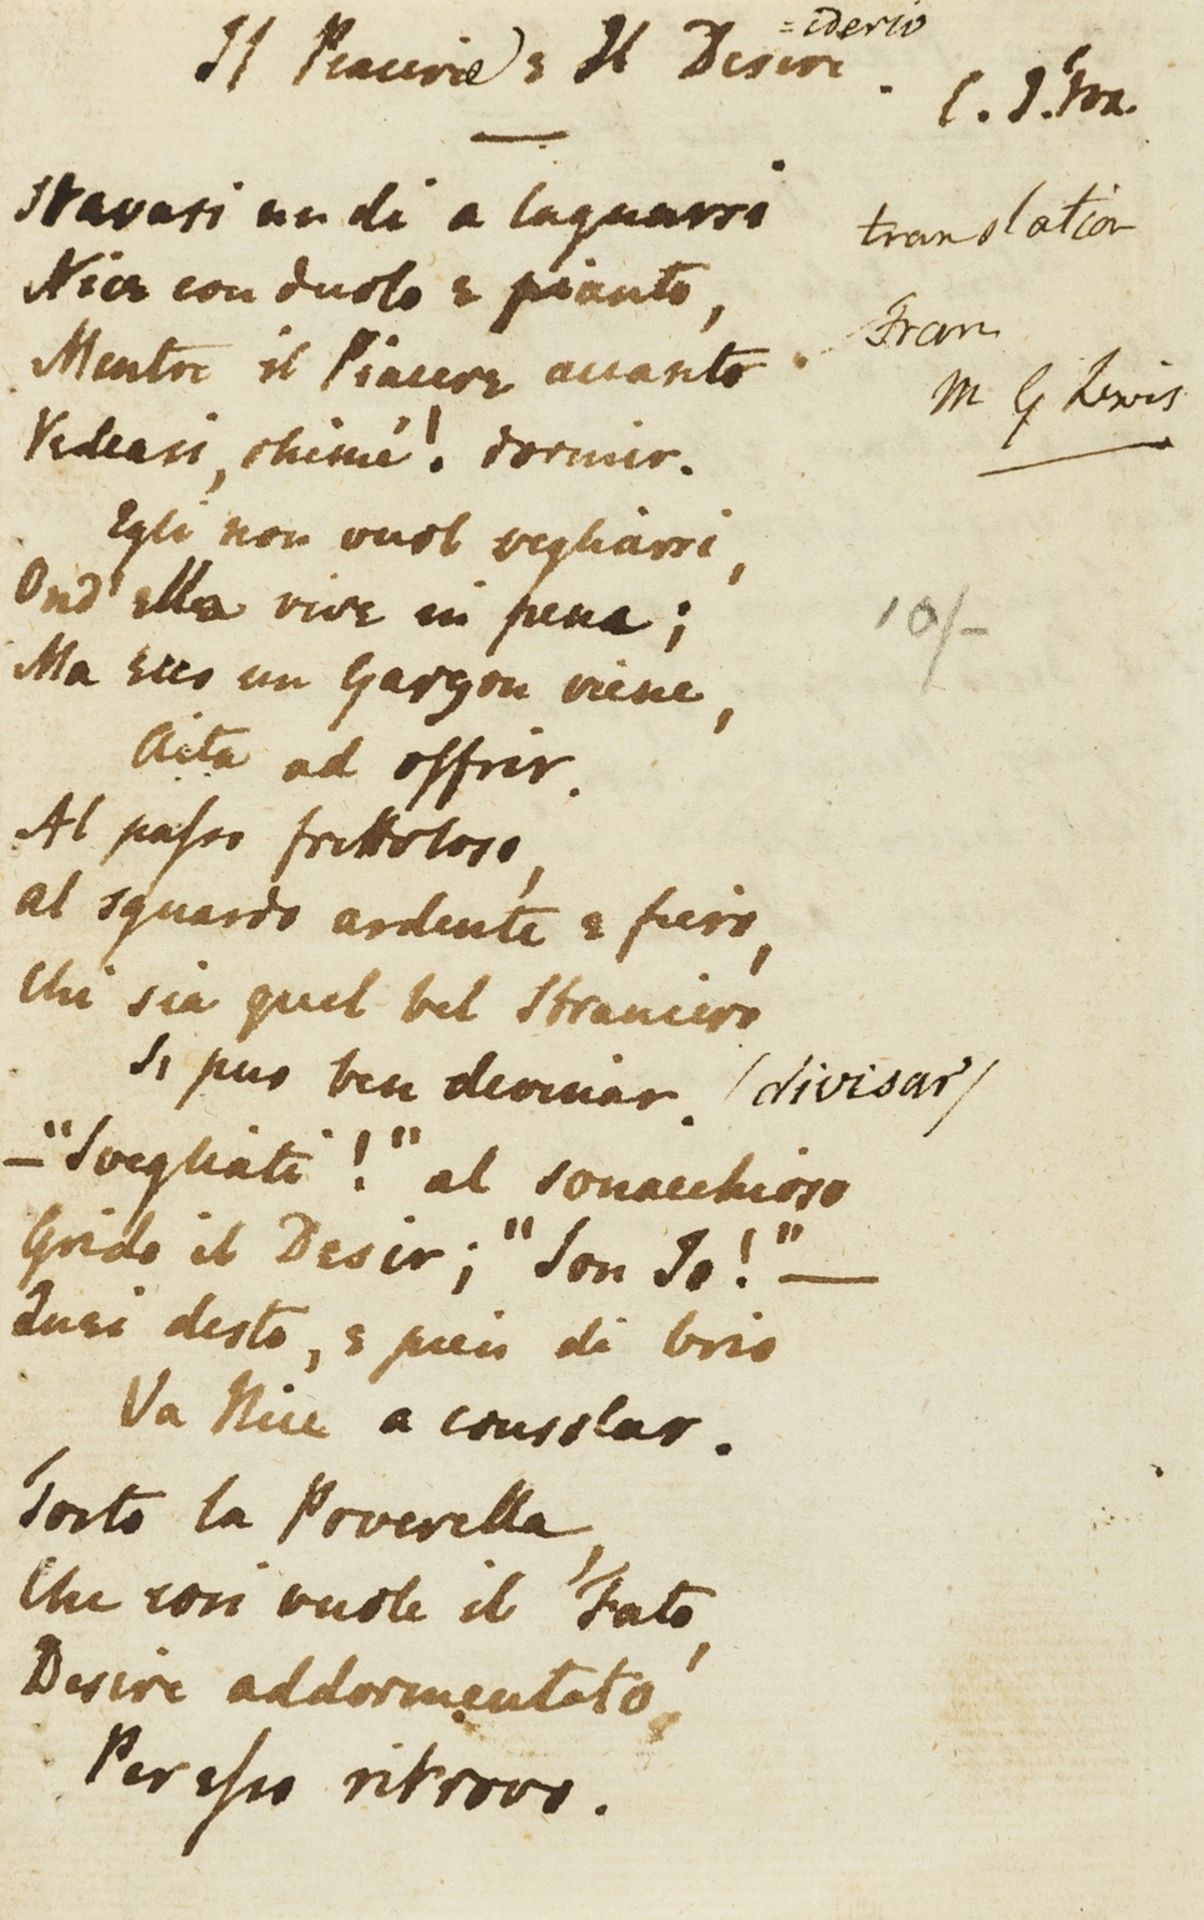 Il Piacere e Il Desire =iderio.
translation
From
M G Lewis
10/-
Stavasi un di a lagnarsi
Nice con duolo e pianto,
Mentre il Piacere accanto
Vedeasi, ohimé! dormir.
Egli non vuol vegliarsi,
Ond'ella vive in pena;
Ma ecco un Garzon viene,
Aita ad offrir.
Al passo frettoloso,
al sguardo ardente e fiero,
Chi sia quel bel Straniero
Si puo ben devinar. (divisar)
—"Svegliati!" al sonacchioso
Grido il Desir; "Son Io!"—
Quei desto, e pien di brio
Va Nice a consolar.
Sorto la Poverella,
Che cosi vuole il Fato,
Desire addormentato,
Per esso ritrovo.